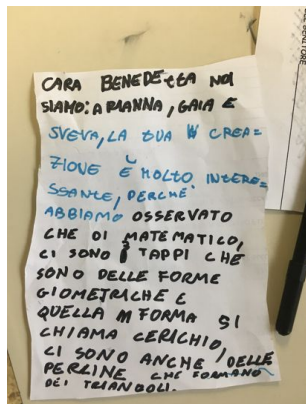 CARA BENEDETTA NOI
SIAMO: ARIANNA, GAIA E
SVEVA, LA TUA CREA=
ZIONE È MOLTO INTERE=
SSANTE, PERCHE'
ABBIAMO OSSERVATO
CHE DI MATEMATICO,
CI SONO I TAPPI CHE
SONO DELLE FORME
GIOMETRICHE E
QUELLA FORMA SI
CHIAMA CERICHIO,
CI SONO ANCHE DELLE
PERLINE CHE FORMANO
DEI TRIANGOLI.
GENITORE